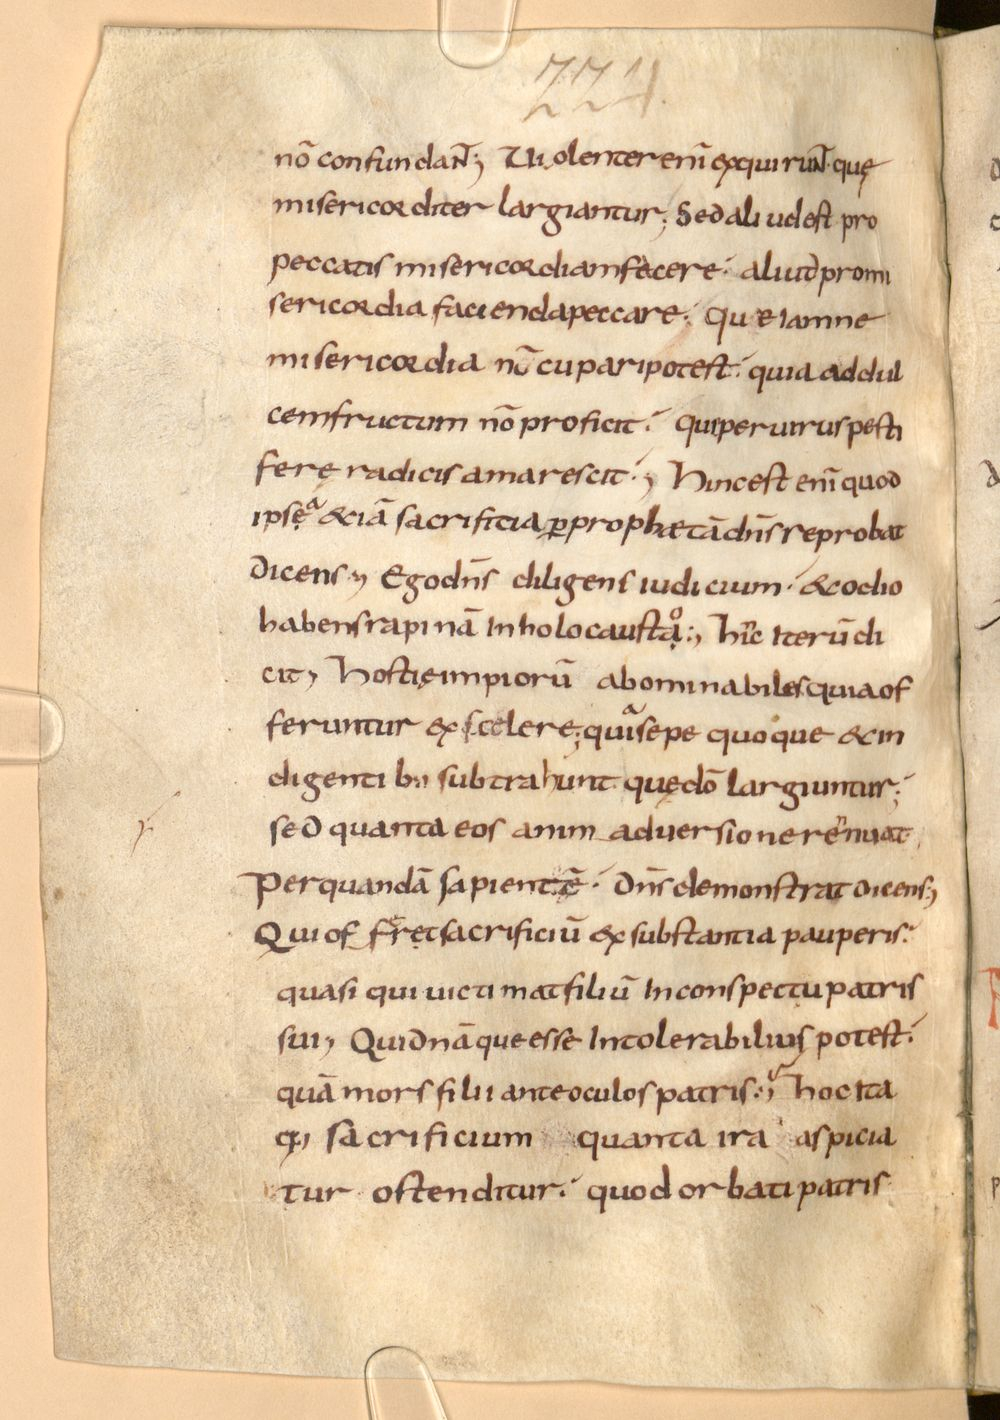 224
nō confundaɴ̄; Uiolenter enī exquiruɴ̄ quę
misericorditer largiantur; Sed aliud est pro
peccatis misericordiam facere· aliud pro mi
sericordia facienda peccare; Que iam ne
misericordia nc̄cupari potest; quia ad dul
cem fructum nō proficit; qui per uirus pesti
ferę radicis amarescit; Hinc est enī quod
ipsęa &iā sacrificia ꝑ prophætā dn̄s reprobat
dicens; Ego dn̄s diligens iudicium· & odio
habens rapinā in holocaustąo; hīc iterū di
cit; Hostię impiorū abominabiles quia of
feruntur ex scelere; quia sepe quoque & in
digentib; subtrahunt quę dō largiuntur;
sed quanta eos anim aduersione renuat
Per quandā sapientē· Dn̄s demonstrat dicens;
Qui offret sacrificiū ex substantia pauperis;
quasi qui uictimat filiū in conspectu patris
sui; Quid nāque esse intolerabilius potest;
quā mors filii ante oculos patris; hoc ita
q; sacrificium quanta ira aspicia
tur ostenditur; quod orbati patris